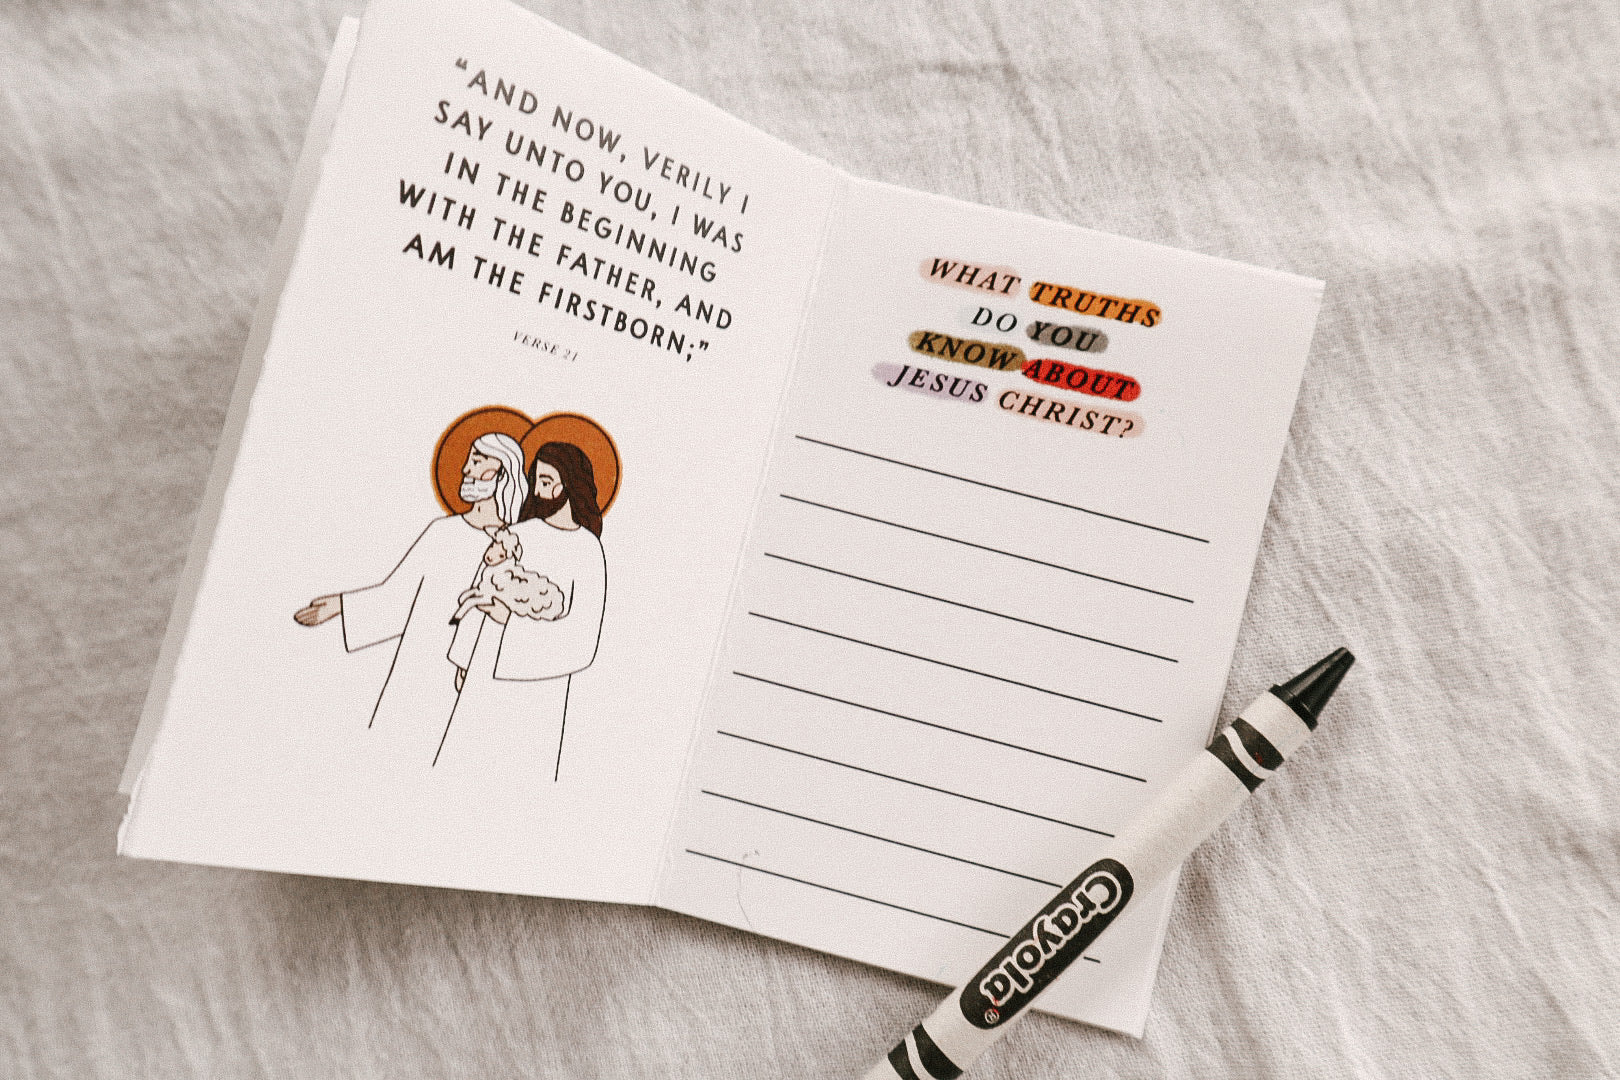 “AND NOW, VERILY I
SAY UNTO YOU, I WAS
IN THE BEGINNING
WITH THE FATHER, AND
AM THE FIRSTBORN;”
VERSE 21
WHAT TRUTHS
DO YOU
KNOW ABOUT
JESUS CHRIST?
Crayola®